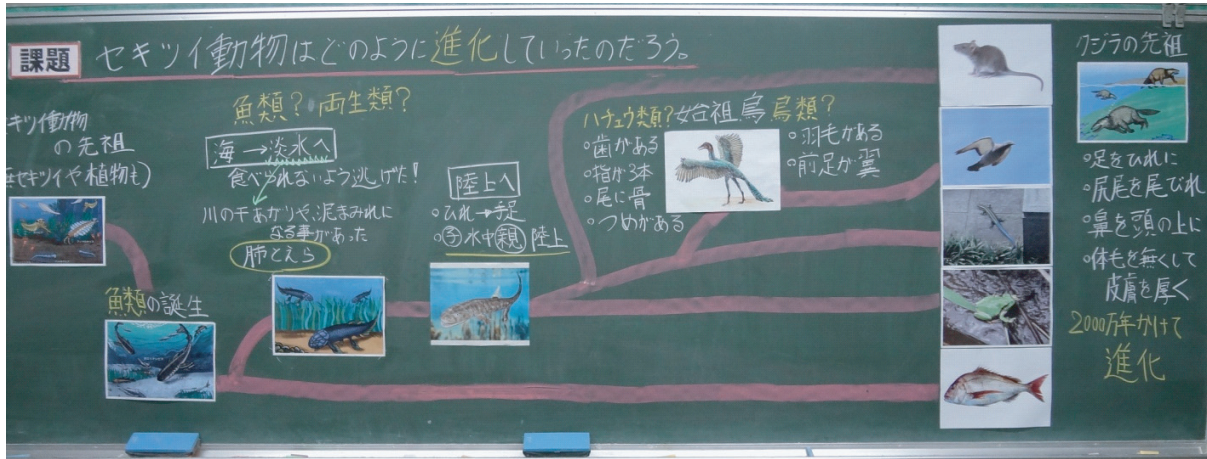 課題 セキツイ動物はどのように進化していったのだろう。
キツイ動物
の先祖
セキツイや植物も)
魚類の誕生
魚類?両生類?
海→淡水へ
食べられないよう逃げた!
川の干あがりや、泥まみれに
なる事があった
肺とえら
陸上へ
○ひれ→手足
○子水中親陸上
ハチュウ類?始祖鳥 鳥類?
○歯がある
○指が3本
○尾に骨
○つめがある
○羽毛がある
○前足が翼
クジラの先祖
○足をひれに
○尻尾を尾びれ
○鼻を頭の上に
○体毛を無くして
皮膚を厚く
2000万年かけて
進化